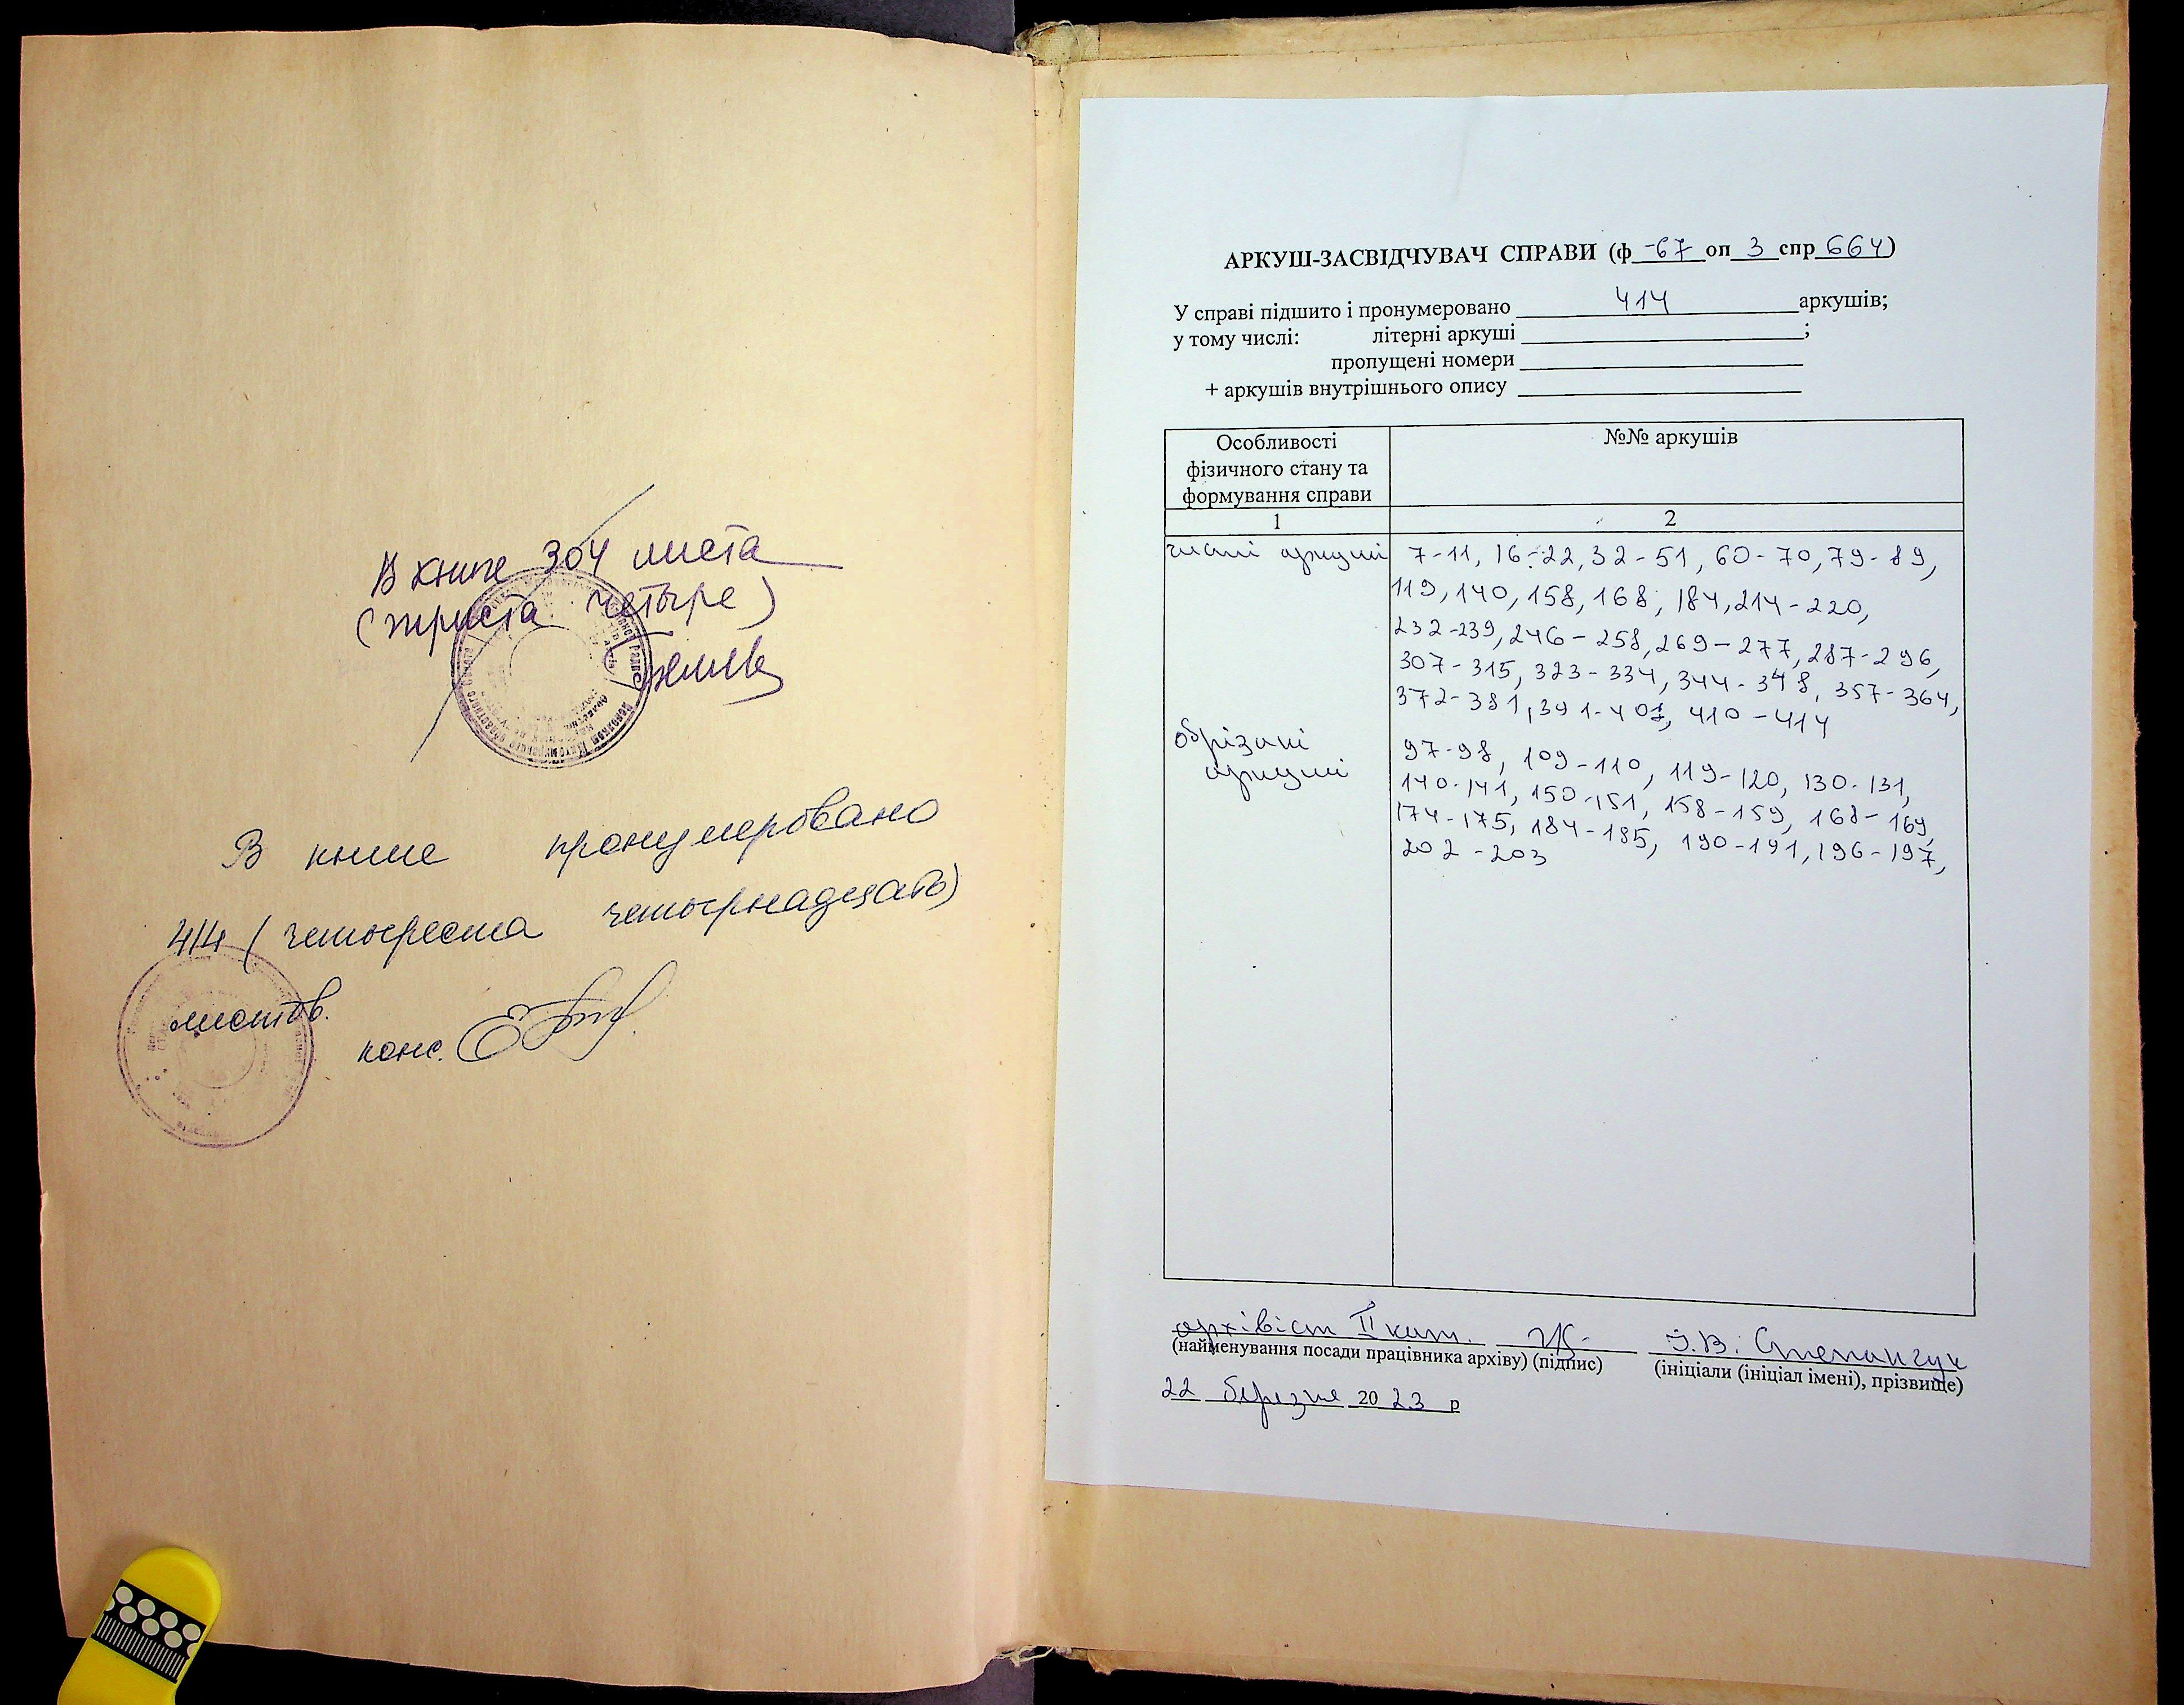 В книге 304 листа
(триста четыре)
В книге пронумеровано
414 (четыреста четырнадцать)
листов.
конс.
АРКУШ-ЗАСВІДЧУВАЧ СПРАВИ (ф 67 оп 3 спр 664)
У справі підшито і пронумеровано 414 аркушів;
у тому числі: літерні аркуші ;
пропущені номери
+ аркушів внутрішнього опису
Особливості
фізичного стану та
формування справи
№№ аркушів
1 2
чисті аркуші 7-11, 16-22, 32-51, 60-70, 79-89,
119, 140, 158, 168, 184, 214-220,
232-239, 246-258, 269-277, 287-296,
307-315, 323-334, 344-348, 357-364,
372-381, 391-401, 410-414
обрізані
аркуші
97-98, 109-110, 119-120, 130-131,
140-141, 150-151, 158-159, 168-169,
174-175, 184-185, 190-191, 196-197,
202-203
архівіст II кат. І.В. Степанчук
(найменування посади працівника архіву) (підпис) (ініціали (ініціал імені), прізвище)
22 березня 2023 р